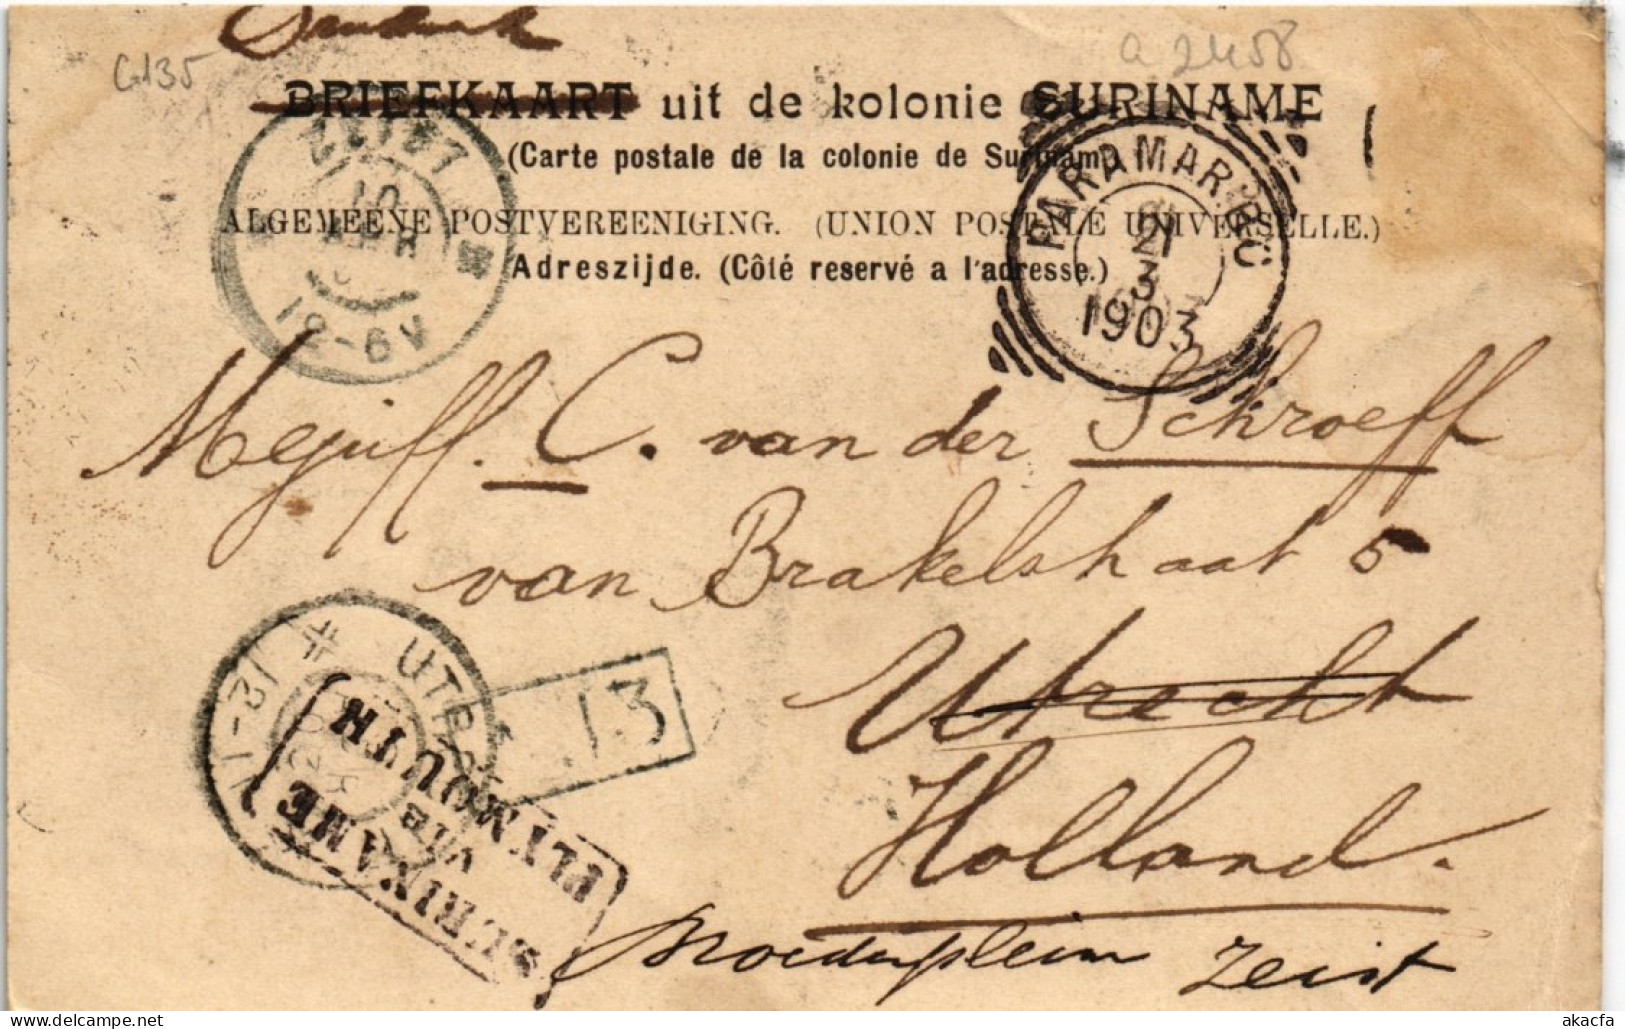 Drukwerk
G135
a 2458
BRIEFKAART uit de kolonie SURINAME
(Carte postale de la colonie de Suriname)
ALGEMEENE POSTVEREENIGING. (UNION POSTALE UNIVERSELLE.)
Adreszijde. (Côté reservé a l'adresse.)
ZEIST
10
APR
12-6V
PARAMARIBO
21
3
1903
Mejuff. C. van der Schroeff
van Brakelstraat 5
Utrecht
Holland.
Zeist
UTRECHT
12-1V
13
SURINAME
VIA
PLYMOUTH
akacfa